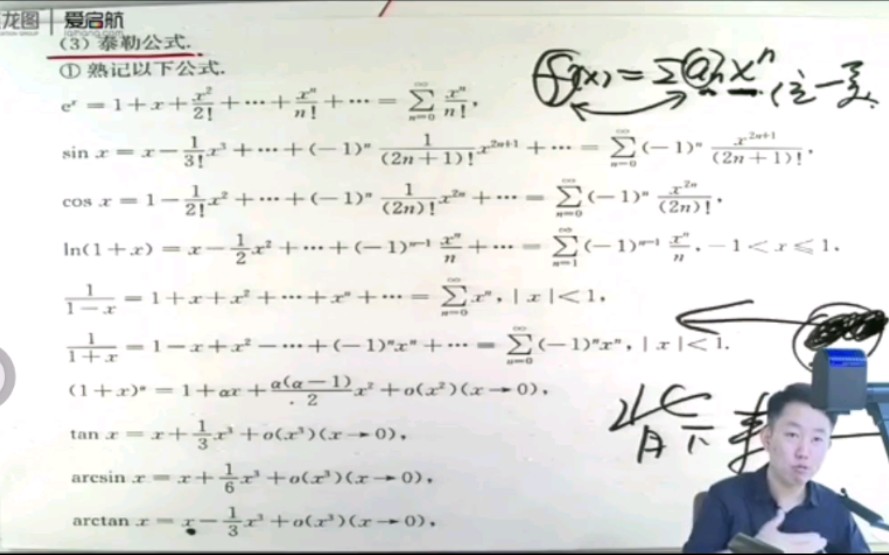 龙图 爱启航
(3) 泰勒公式.
① 熟记以下公式.
f(x) = Σ aₙ xⁿ
e^x = 1 + x + x²/2! + ⋯ + xⁿ/n! + ⋯ = ∑_{n=0}^{∞} xⁿ/n!,
sin x = x − 1/3! x³ + ⋯ + (−1)ⁿ 1/(2n+1)! x^{2n+1} + ⋯ = ∑_{n=0}^{∞} (−1)ⁿ x^{2n+1}/(2n+1)!,
cos x = 1 − 1/2! x² + ⋯ + (−1)ⁿ 1/(2n)! x^{2n} + ⋯ = ∑_{n=0}^{∞} (−1)ⁿ x^{2n}/(2n)!,
ln(1+x) = x − 1/2 x² + ⋯ + (−1)^{n−1} xⁿ/n + ⋯ = ∑_{n=1}^{∞} (−1)^{n−1} xⁿ/n, −1 < x ≤ 1,
1/(1−x) = 1 + x + x² + ⋯ + xⁿ + ⋯ = ∑_{n=0}^{∞} xⁿ, |x| < 1,
1/(1+x) = 1 − x + x² − ⋯ + (−1)ⁿxⁿ + ⋯ = ∑_{n=0}^{∞} (−1)ⁿxⁿ, |x| < 1.
(1+x)^α = 1 + αx + α(α−1)/2 x² + o(x²)(x→0),
tan x = x + 1/3 x³ + o(x³)(x→0),
arcsin x = x + 1/6 x³ + o(x³)(x→0),
arctan x = x − 1/3 x³ + o(x³)(x→0),